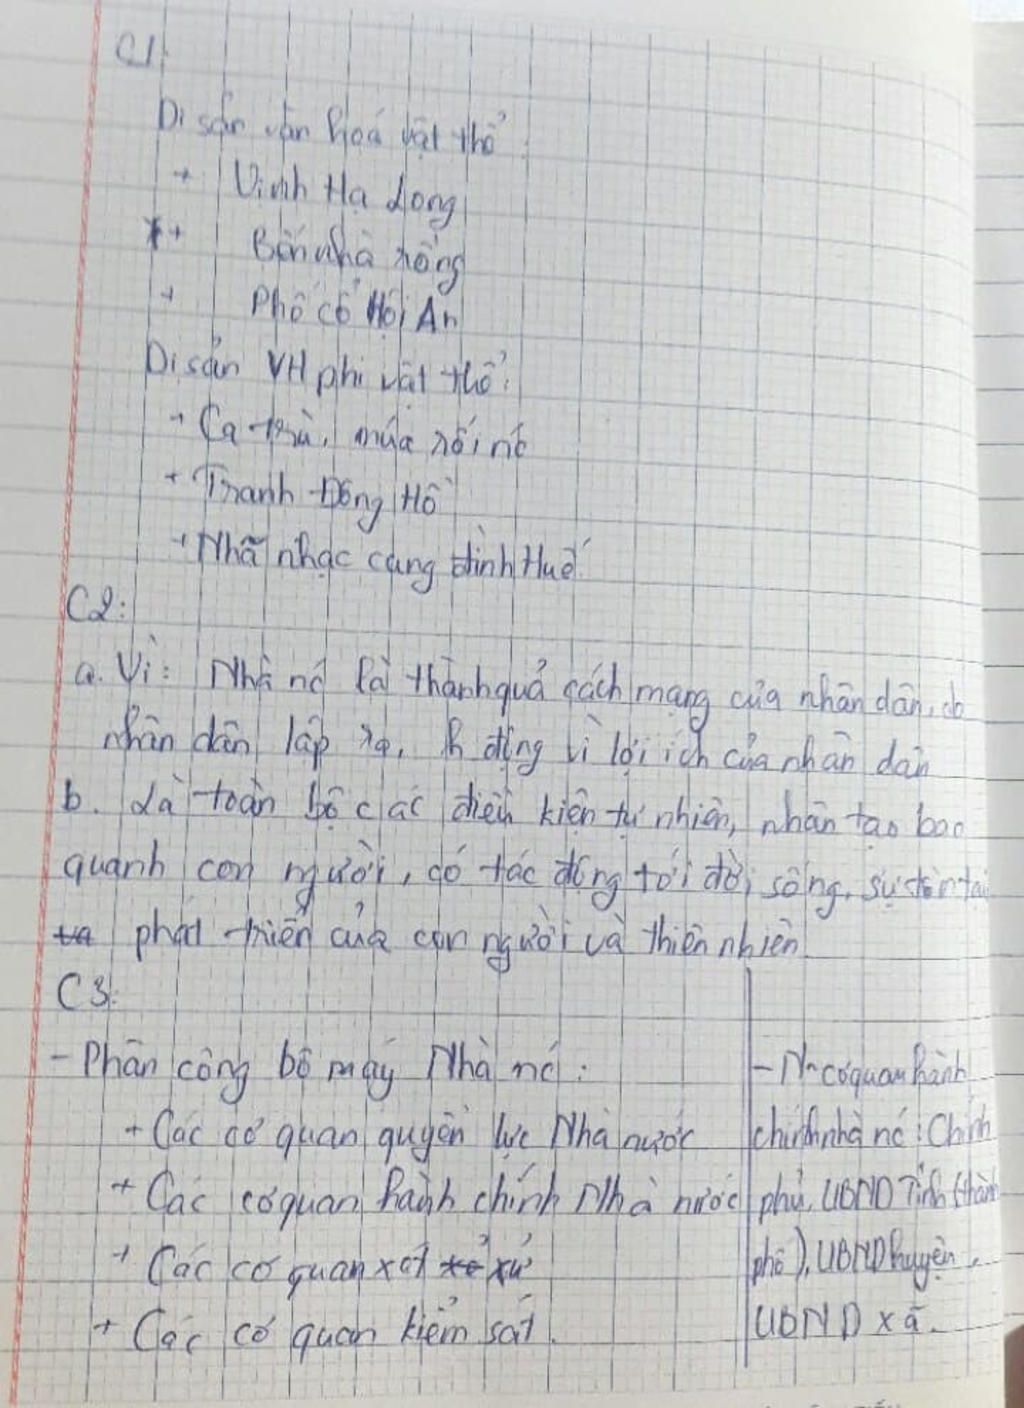 C1.
Di sản văn hoá vật thể:
+ Vịnh Hạ Long
+ Bến nhà rồng
+ Phố cổ Hội An
Di sản VH phi vật thể:
+ Ca trù, múa rối nc
+ Tranh Đông Hồ
+ Nhã nhạc cung đình Huế.
C2:
a. Vì: Nhà nc là thành quả cách mạng của nhân dân, do
nhân dân lập ra, h động vì lợi ích của nhân dân
b. Là toàn bộ các điều kiện tự nhiên, nhân tạo bao
quanh con người, có tác động tới đời sống, sự tồn tại
phát triển của con người và thiên nhiên
C3:
- Phân công bộ máy Nhà nc:
+ Các cơ quan quyền lực Nhà nước
+ Các cơ quan hành chính Nhà nước
+ Các cơ quan xét xử
+ Các cơ quan kiểm sát.
- N~ cơ quan hành
chính nhà nc: Chính
phủ, UBND Tỉnh (thành
phố), UBND huyện,
UBND xã.